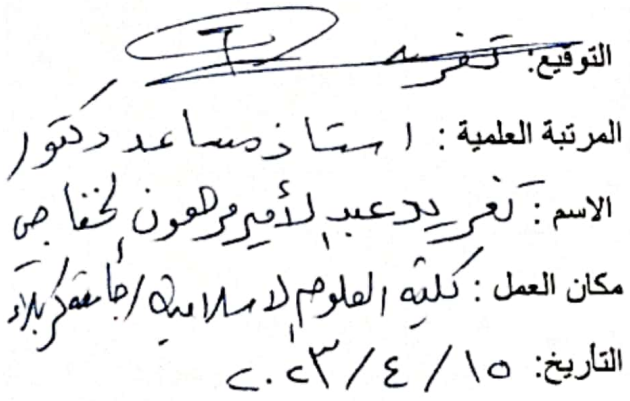 التوقيع: تغريد
المرتبة العلمية: استاذ مساعد دكتور
الاسم: تغريد عبد الأمير مرهون الخفاجي
مكان العمل: كلية العلوم الاسلامية / جامعة كربلاء
التأريخ: ١٥ / ٤ / ٢٠٢٣